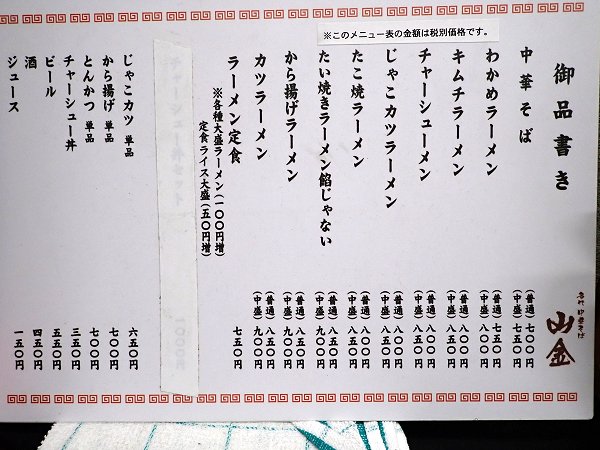 ※このメニュー表の金額は税別価格です。
御品書き
名代 中華そば
山金
中華そば (普通)七〇〇円
(中盛)七五〇円
わかめラーメン (普通)七五〇円
(中盛)八〇〇円
キムチラーメン (普通)八〇〇円
(中盛)八五〇円
チャーシューメン (普通)八〇〇円
(中盛)八五〇円
じゃこカツラーメン (普通)八〇〇円
(中盛)八五〇円
たこ焼ラーメン (普通)八〇〇円
(中盛)八五〇円
たい焼きラーメン餡じゃない (普通)八五〇円
(中盛)九〇〇円
から揚げラーメン (普通)八五〇円
(中盛)九〇〇円
カツラーメン (普通)八五〇円
(中盛)九〇〇円
ラーメン定食 七五〇円
※各種大盛ラーメン(一〇〇円増)
定食ライス大盛(五〇円増)
チャーシュー丼セット 一〇〇〇円
じゃこカツ 単品 六五〇円
から揚げ 単品 七〇〇円
とんかつ 単品 七〇〇円
チャーシュー丼 三五〇円
ビール 五五〇円
酒 四五〇円
ジュース 一五〇円